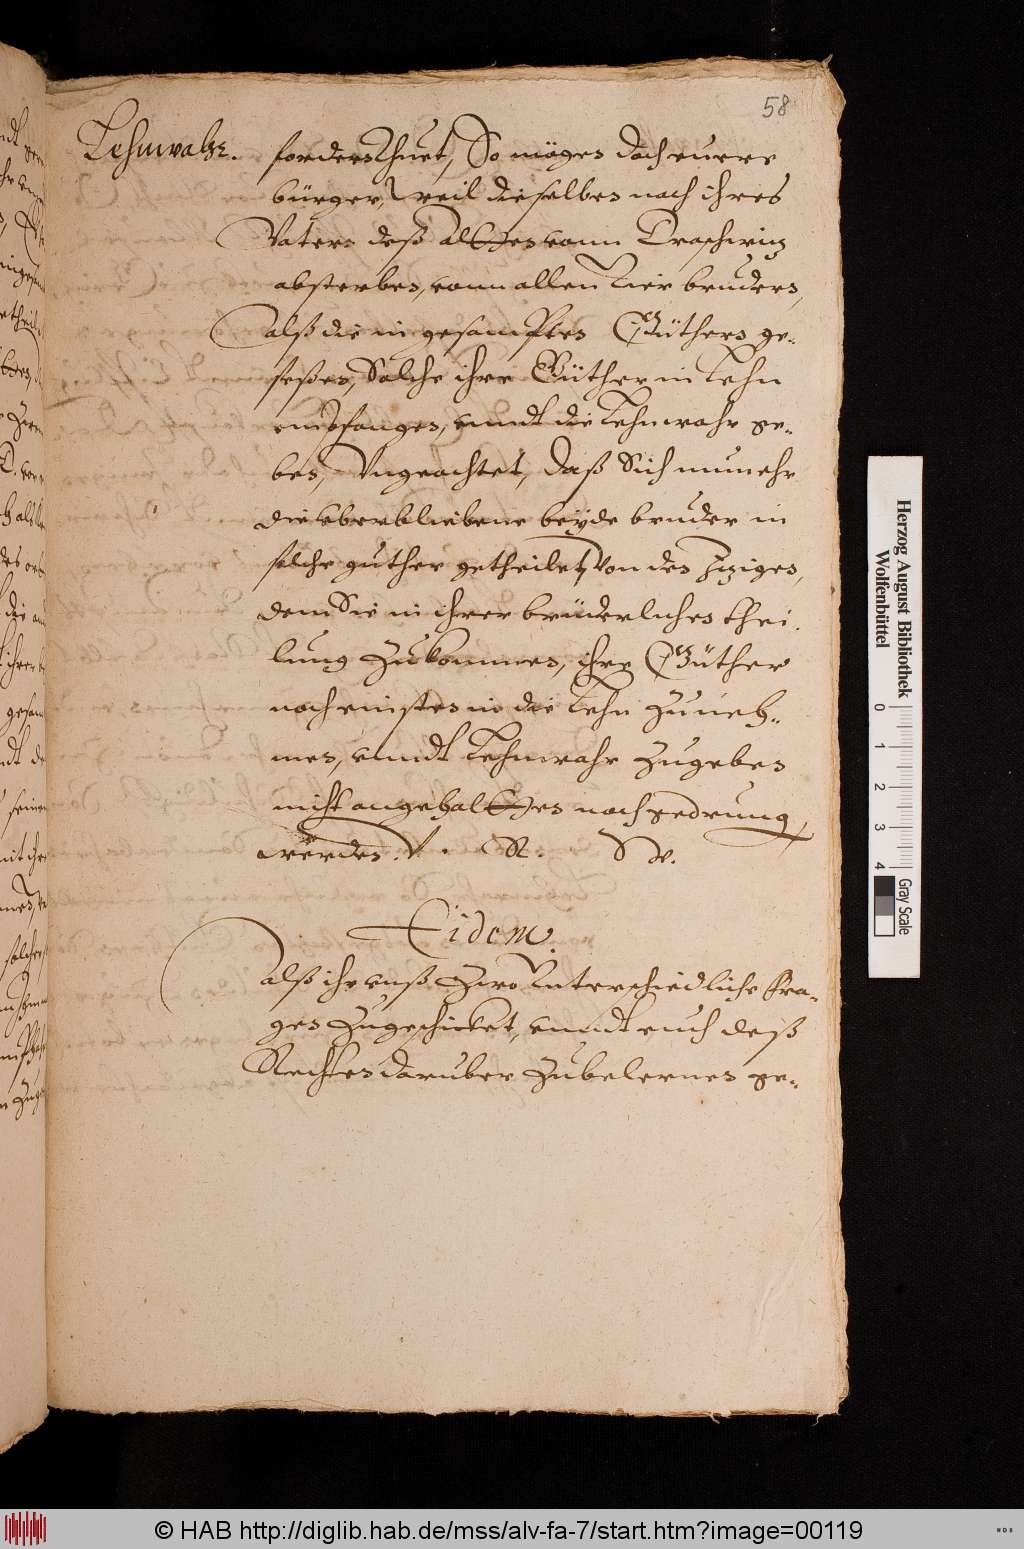 58
Lehnwahr.
fordern thuet, So mögen doch euere
bürger, weil dieselben nach ihres
Vatern deß Altten vonn Draschwitz
absterben, vonn allen vier brudern,
alß die in gesampten Güthern ge-
seßen, Solche ihre Güther in Lehn
empfangen, vnndt die Lehnwahr ge-
ben, Vngeachtet, daß Sich nunmehr
die vberbliebene beyde bruder in
solche guther getheilet, Von den
dem Sie in ihrer brüderlichen thei-
lung Zukommen, ihre Güther
noch einsten in die Lehn Zuneh-
men, vnndt Lehnwahr Zugeben
nicht angehaltten noch gedrungen
werden. V. R. W.
Eidem.
Alß ihr vnß Zwo Vnterschiedliche Fra-
gen Zugeschicket, vnndt euch deß
Rechten daruber Zubelernen ge-
Herzog August Bibliothek
Wolfenbüttel
0 1 2 3 4
Gray Scale
© HAB http://diglib.hab.de/mss/alv-fa-7/start.htm?image=00119